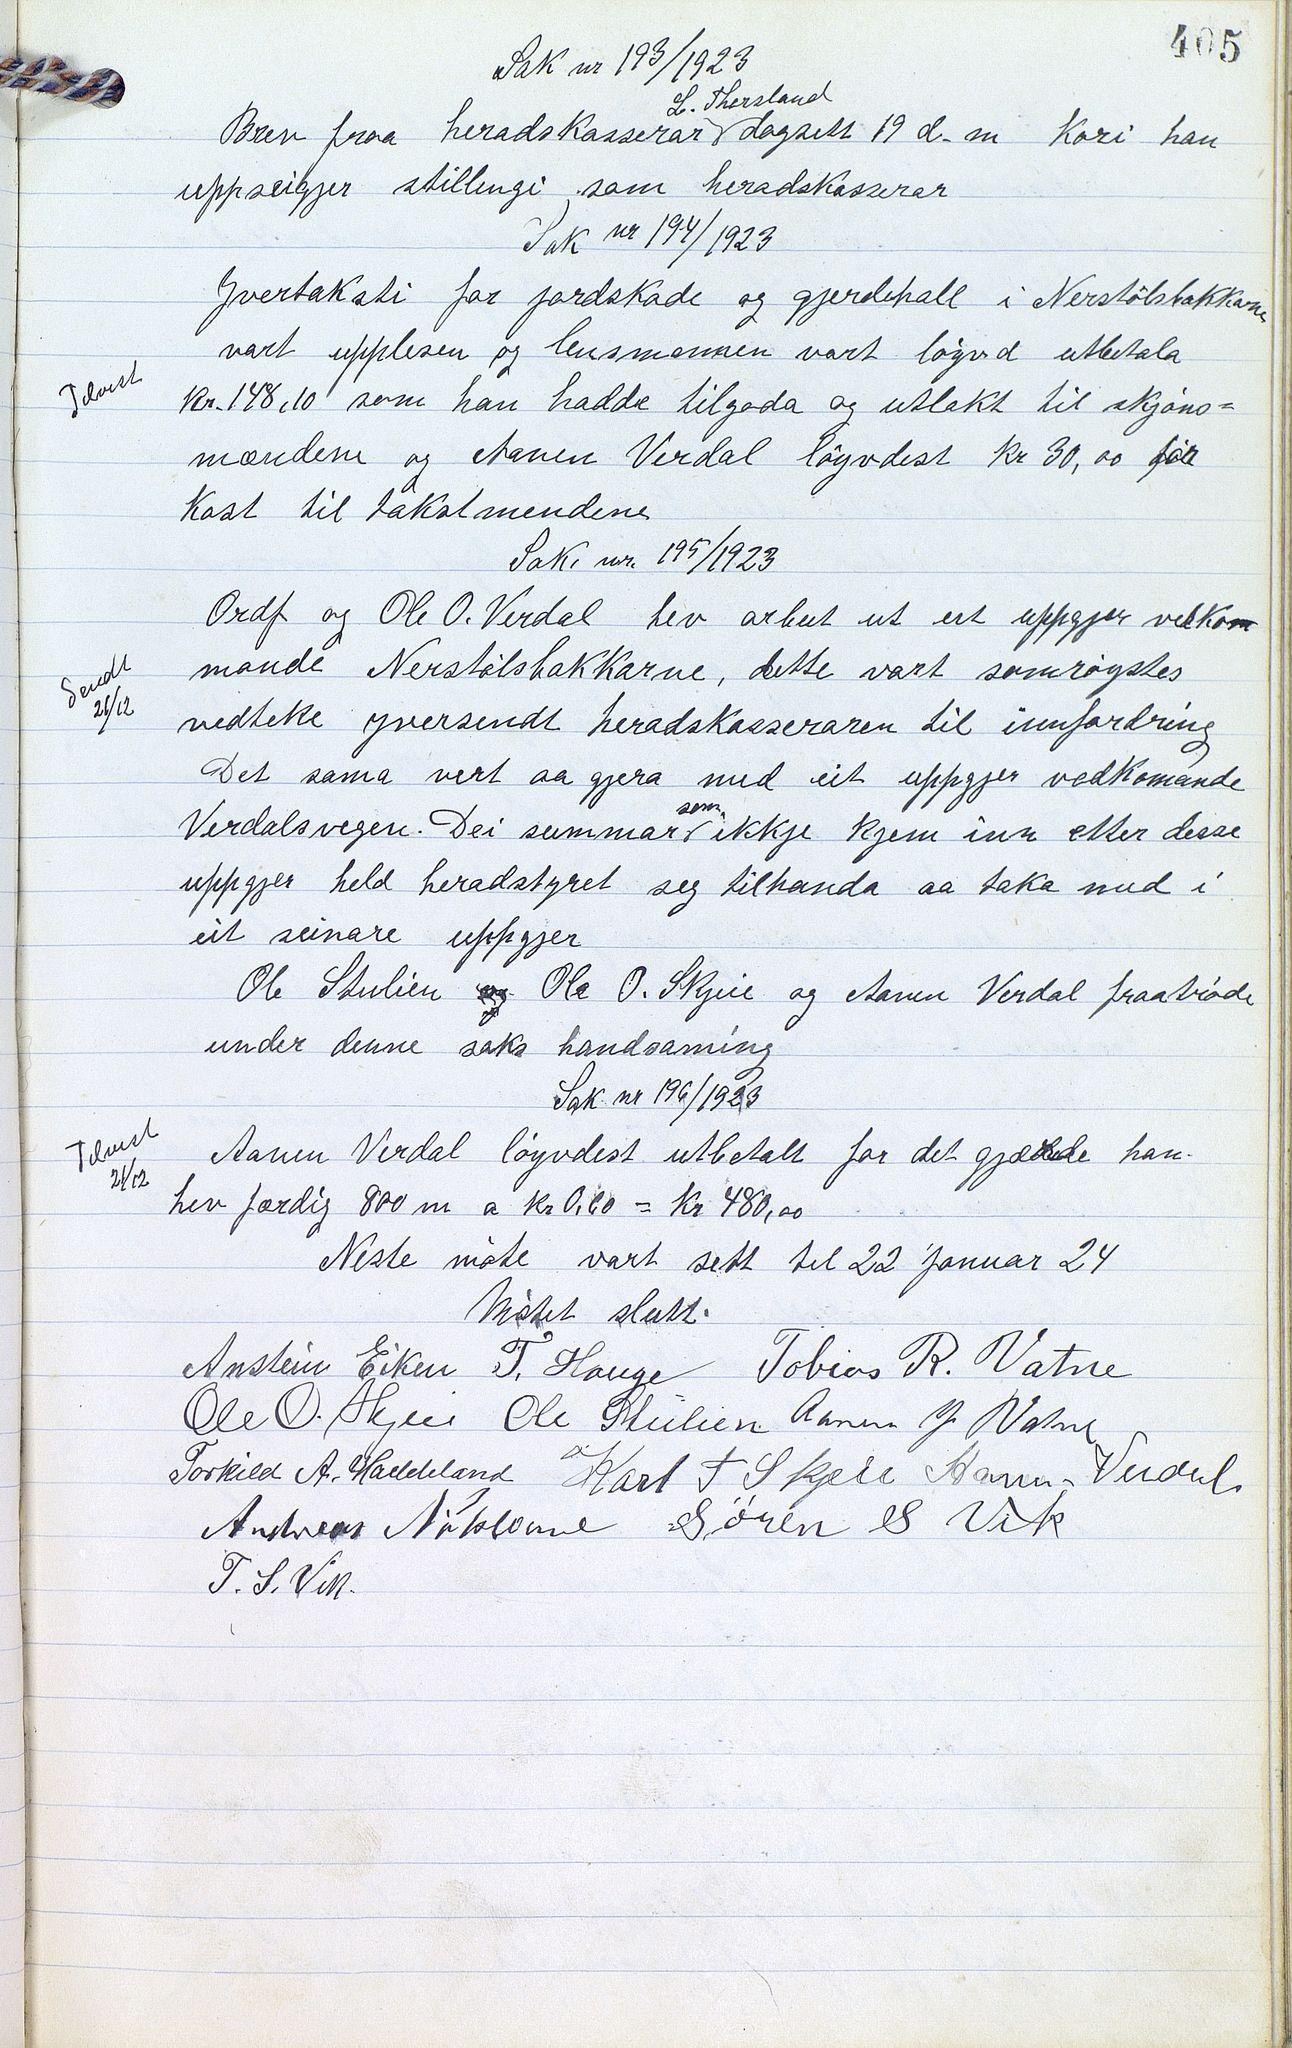 405
Sak nr 193/1923
L. Thersland
Brev fraa heradskasserar dagsett 19 d. m kori han
uppseigjer stillingi som heradskasserar
Sak nr 194/1923
Yvertaksti for jordskade og gjerdehall i Nerstölsbakkarne
vart upplesen og lensmannen vart löyvd utbetala
Tilvist
kr. 148,10 som han hadde tilgoda og utlakt til skjöns=
mændene og Aanen Verdal löyvdest kr 30,00 for
kost til takstmendene
Sak. nr. 195/1923
Ordf og Ole O. Verdal hev arbeit ut eit uppgjer vedkom
mande Nerstölsbakkarne, dette vart samröystes
Sendt
21/12
vedteke yversendt heradskasseraren til innfordring
Det sama vert aa gjera med eit uppgjer vedkomande
som
Verdalsvegen. Dei summar ikkje kjem inn etter desse
uppgjer held heradstyret seg tilhanda aa taka med i
eit seinare uppgjer
Ole Stulien Ole O. Skjeie og Aanen Verdal fraatröde
under denne saks handsaming
Sak nr 196/1923
Tilvist
21/12
Aanen Verdal löyvdest utbetalt for det gjærde han
hev færdig 800 m a kr 0,60 = kr 480,00
Neste möte vart sett til 22 januar 24
Mötet slutt.
Anstein Eiken T. Hauge Tobias R. Vatne
Ole O. Skjeie Ole Stulien Aanen J Vatne
Torkild A. Haddeland Karl T Skjeie Aanen Verdal
Andreas Sören S Vik
T. S. Vik.